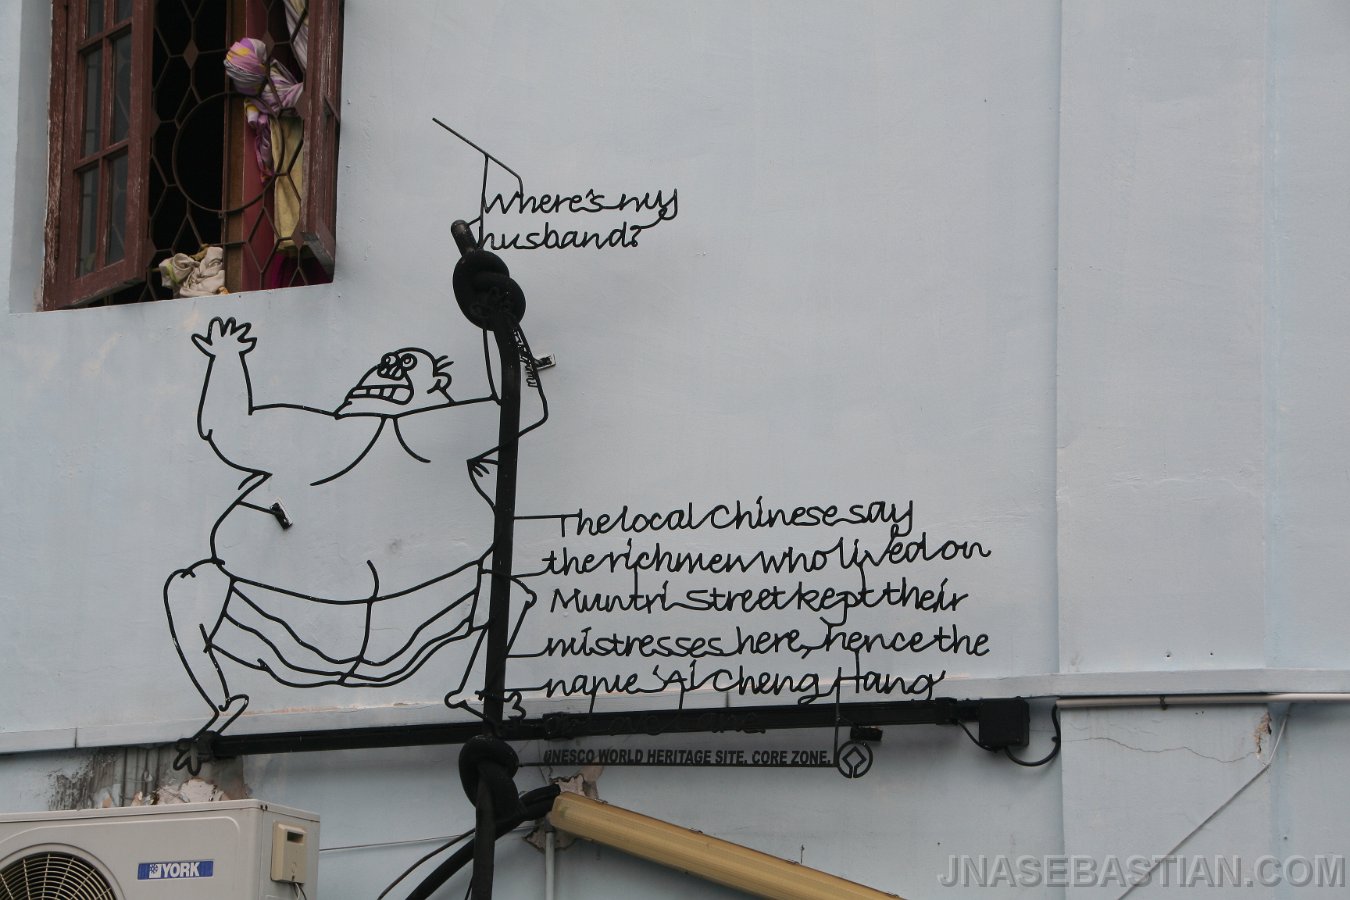 Where's my
husband?
The local Chinese say
the richmen who lived on
Muntri Street kept their
mistresses here, hence the
name 'Ai Cheng Hang'
or Love Lane
UNESCO WORLD HERITAGE SITE. CORE ZONE.
YORK
JNASEBASTIAN.COM